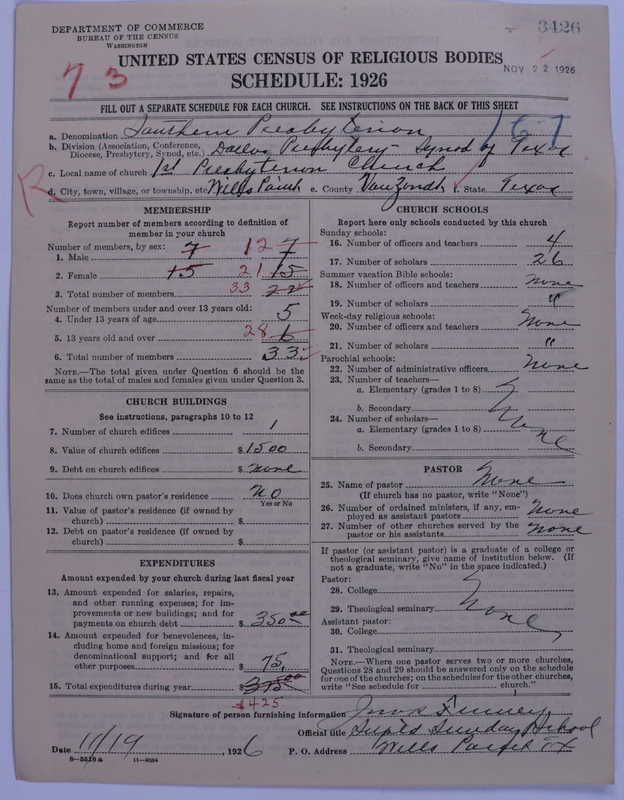 DEPARTMENT OF COMMERCE
BUREAU OF THE CENSUS
WASHINGTON
3426
UNITED STATES CENSUS OF RELIGIOUS BODIES
NOV 22 1926
SCHEDULE: 1926
73
FILL OUT A SEPARATE SCHEDULE FOR EACH CHURCH. SEE INSTRUCTIONS ON THE BACK OF THIS SHEET
167
a. Denomination Southern Presbyterian
b. Division (Association, Conference, Diocese, Presbytery, Synod, etc.) Dallas Presbytery - Synod of Texas
c. Local name of church 1st Presbyterian Church
R
d. City, town, village, or township, etc. Wills Point e. County Van Zandt f. State Texas
MEMBERSHIP
Report number of members according to definition of
member in your church
Number of members, by sex: 7 12 7
1. Male
2. Female 15 21 15
3. Total number of members 33 22
Number of members under and over 13 years old:
4. Under 13 years of age 5
5. 13 years old and over 28 6
6. Total number of members 33
NOTE.—The total given under Question 6 should be
same as the total of males and females given under Question 3.
CHURCH BUILDINGS
See instructions, paragraphs 10 to 12
7. Number of church edifices 1
8. Value of church edifices $1500
9. Debt on church edifices $ none
10. Does church own pastor's residence No
Yes or No
11. Value of pastor's residence (if owned by
church) $
12. Debt on pastor's residence (if owned by
church) $
EXPENDITURES
Amount expended by your church during last fiscal year
13. Amount expended for salaries, repairs,
and other running expenses; for im-
provements or new buildings; and for
payments on church debt $ 350.00
14. Amount expended for benevolences, in-
cluding home and foreign missions; for
denominational support; and for all
other purposes $ 75.
15. Total expenditures during year $ 375.00
$425
CHURCH SCHOOLS
Report here only schools conducted by this church
Sunday schools:
16. Number of officers and teachers 4
17. Number of scholars 26
Summer vacation Bible schools:
18. Number of officers and teachers None
19. Number of scholars "
Week-day religious schools:
20. Number of officers and teachers None
21. Number of scholars "
Parochial schools:
22. Number of administrative officers None
23. Number of teachers—
a. Elementary (grades 1 to 8)
b. Secondary
24. Number of scholars— None
a. Elementary (grades 1 to 8)
b. Secondary
PASTOR
25. Name of pastor None
(If church has no pastor, write "None")
26. Number of ordained ministers, if any, em-
ployed as assistant pastors None
27. Number of other churches served by the
pastor or his assistants None
If pastor (or assistant pastor) is a graduate of a college or
theological seminary, give name of institution below. (If
not a graduate, write "No" in the space indicated.)
Pastor:
28. College
29. Theological seminary None
Assistant pastor:
30. College
31. Theological seminary
NOTE.—Where one pastor serves two or more churches,
Questions 28 and 29 should be answered only on the schedule
for one of the churches; on the schedules for the other churches,
write "See schedule for church."
Signature of person furnishing information Finney
Official title Supt Sunday School
Date 11/19, 1926 P. O. Address Wills Point Tx
8—5518 a 11—9054